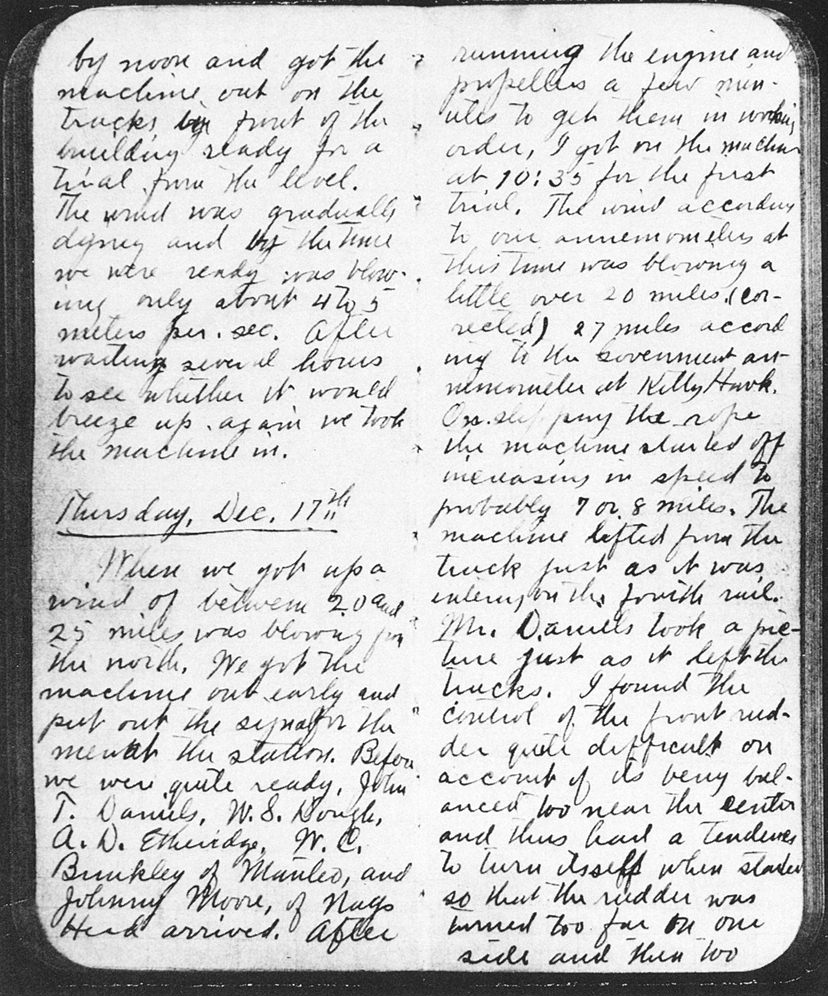 by noon and got the
machine out on the
tracks in front of the
building ready for a
trial from the level.
The wind was gradually
dying and by the time
we were ready was blow-
ing only about 4 to 5
meters per. sec. After
waiting several hours
to see whether it would
breeze up again we took
the machine in.
Thursday, Dec. 17th
When we got up a
wind of between 20 and
25 miles was blowing from
the north. We got the
machine out early and
put out the signal for the
men at the station. Before
we were quite ready, John
T. Daniels, W.S. Dough,
A. D. Etheridge, W. C.
Brinkley of Manteo, and
Johnny Moore, of Nags
Head arrived. After
running the engine and
propellers a few min-
utes to get them in working
order, I got on the machine
at 10:35 for the first
trial. The wind according
to our annemometers at
this time was blowing a
little over 20 miles (cor-
rected) 27 miles accord
ing to the Government an-
nemometer at Kitty Hawk.
On slipping the rope
the machine started off
increasing in speed to
probably 7 or 8 miles. The
machine lifted from the
truck just as it was
entering on the fourth rail.
Mr. Daniels took a pic-
ture just as it left the
tracks. I found the
control of the front rud-
der quite difficult on
account of its being bal-
anced too near the center
and thus had a tendency
to turn itself when started
so that the rudder was
turned too far on one
side and then too